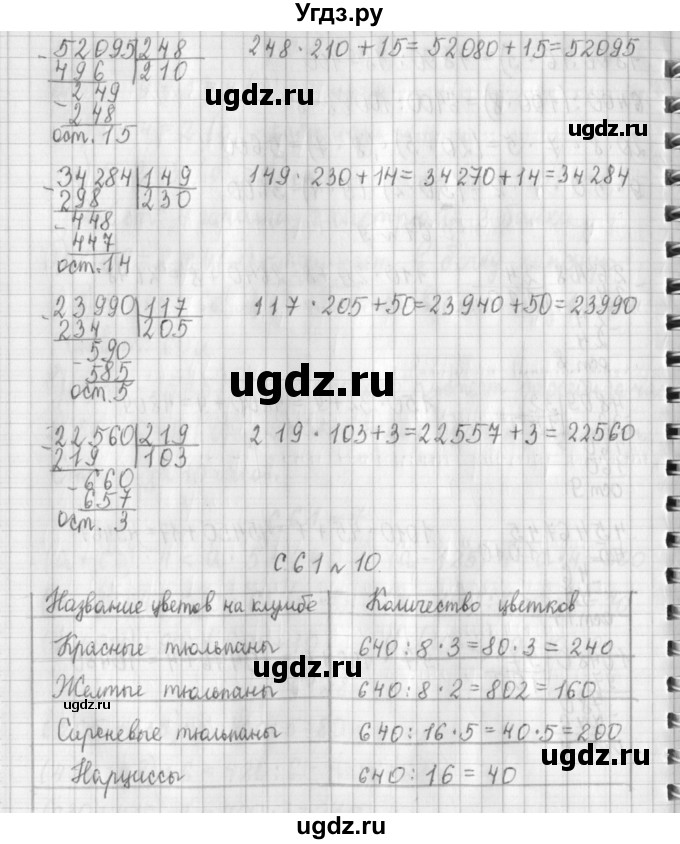 Угдз.ру
52095 | 248    248 · 210 + 15 = 52080 + 15 = 52095
496 | 210
ugdz.ru
- 249
248
ост. 15
34284 | 149    149 · 230 + 14 = 34270 + 14 = 34284
298 | 230
- 448
447
ugdz.ru
ост. 14
23990 | 117    117 · 205 + 50 = 23940 + 50 = 23990
234 | 205
- 590
585
ост. 5
ugdz.ru
22560 | 219    219 · 103 + 3 = 22557 + 3 = 22560
219 | 103
- 660
657
ugdz.ru
ост. 3
С. 61 № 10.
Название цветов на клумбе    Количество цветков
Красные тюльпаны    640 : 8 · 3 = 80 · 3 = 240
ugdz.ru
Желтые тюльпаны    640 : 8 · 2 = 802 = 160
ugdz.ru
Сиреневые тюльпаны    640 : 16 · 5 = 40 · 5 = 200
ugdz.ru
Нарциссы    640 : 16 = 40
ugdz.ru